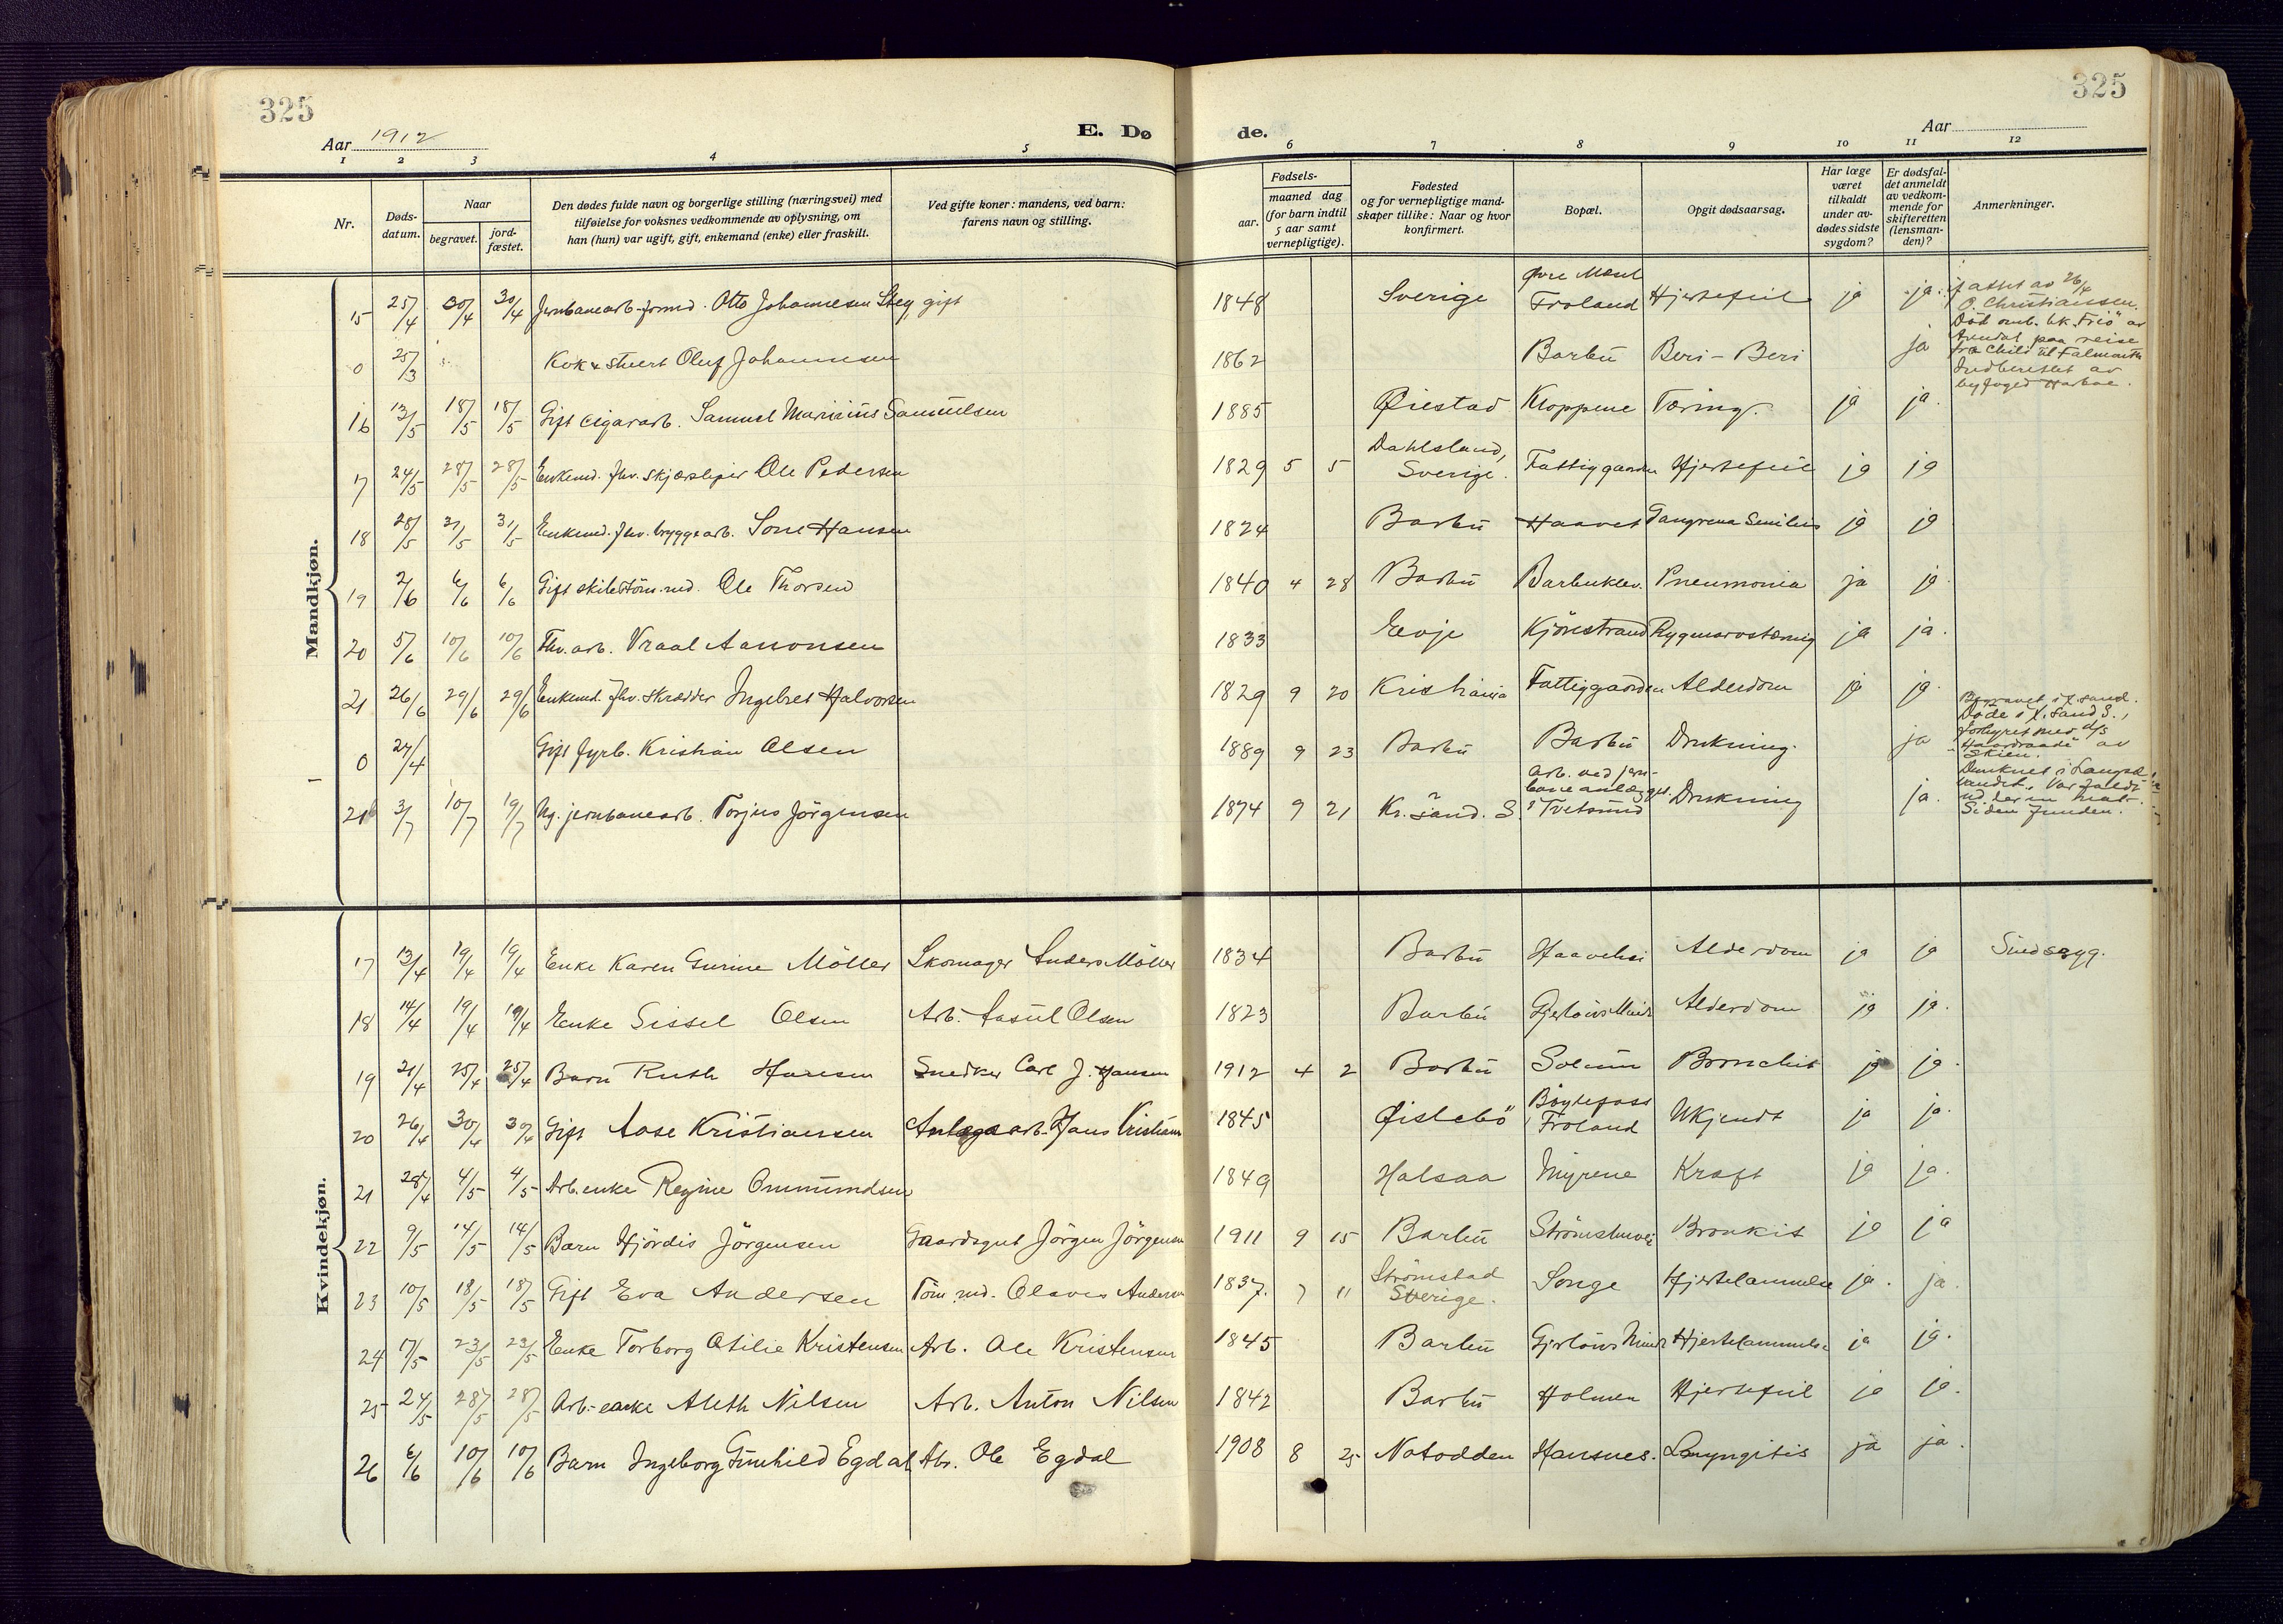 325
325
Aar 1912
E. Dø
de.
Aar
1 2 3 4 5 6 7 8 9 10 11 12
Nr.
Døds-
datum.
Naar
begravet.
jord-
fæstet.
Den dødes fulde navn og borgerlige stilling (næringsvei) med
tilføielse for voksnes vedkommende av oplysning, om
han (hun) var ugift, gift, enkemand (enke) eller fraskilt.
Ved gifte koner: mandens, ved barn:
farens navn og stilling.
Fødsels-
aar.
maaned dag
(for barn indtil
5 aar samt
vernepligtige).
Fødested
og for vernepligtige mand-
skaper tillike: Naar og hvor
konfirmert.
Bopæl.
Opgit dødsaarsag.
Har læge
været
tilkaldt
under av-
dødes sidste
sygdom?
Er dødsfal-
det anmeldt
av vedkom-
mende for
skifteretten
(lensman-
den)?
Anmerkninger.
Mandkjøn.
15 25/4 30/4 30/4 Jernbanearb. formd. Otto Johannesen Steg gift 1848 Sverige Øvre Froland Hjertefeil ja ja. attst av 26/4 O. Christianssen.
0 25/3 Kok & stuert Oluf Johannesen 1862 Barbu Beri-Beri ja Död omb. bk. "Friö" av Arendal paa reise fra Chili til Falmouth Indberettet av byfoged
16 13/5 18/5 18/5 Gift cigararb. Samuel Maririus Samuelsen 1885 Øiestad Kloppene Tæring. ja ja.
17 24/5 28/5 28/5 Enkemd. fhv. skjærsliper Ole Pedersen 1829 5 5 Dahlsland, Sverige. Fattiggaarden Hjertefeil ja ja
18 28/5 31/5 31/5 Enkemd. fhv. bryggearb. Hansen 1824 Barbu Haavet Gangrena Senilis ja ja
19 2/6 6/6 6/6 Gift skibstöm.md. Ole Thorsen 1840 4 28 Barbu Barbuklev. Pneumonia ja ja.
20 5/6 10/6 10/6 Fhv. arb. Vraal Aanonsen 1833 Evje Kjönstrand Rygmarvstæring ja ja.
21 26/6 29/6 29/6 Enkemd. fhv. skrædder Ingebret Halvorsen 1829 9 20 Kristiania Fattiggaarden Alderdom ja ja.
0 27/4 Gift fyrb. Kristian Olsen 1889 9 23 Barbu Barbu Drukning. ja Begravet i K.sand. Döde i K. sand S., forhyret med d/s "Haardraade" av Skien.
21b 3/7 10/7 19/7 Ug. jernbanearb. Torjus Jörgensen 1874 9 21 Kr. sand. S Arb. ved jernbaneanlægget i Tvetsund Drukning ja. Druknet i vandet. Var faldt ud der en nat. Siden funden.
Kvindekjøn.
17 13/4 19/4 19/4 Enke Karen Gurine Möller Skomager Anders Möller 1834 Barbu Haavehei Alderdom ja ja Sindssyg.
18 14/4 19/4 19/4 Enke Sissel Olsen Arb. Aasul Olsen 1823 Barbu Gjerlöws Minde Alderdom ja ja.
19 21/4 25/4 25/4 Barn Ruth Hansen Snedker Carl J. Hansen 1912 4 2 Barbu Solum Bronchit ja ja.
20 26/4 30/4 30/4 Gift Aase Kristiansen Anlægsarb. Hans Kristians 1845 Øislebö Böylefoss Froland Ukjendt ja ja.
21 28/4 4/5 4/5 Arb.enke Regine Ommundsen 1849 Halsaa Myrene Kræft ja ja.
22 9/5 14/5 14/5 Barn Hjördis Jörgensen Gaardsgut Jörgen Jörgensen 1911 9 15 Barbu Strömsbuvei Bronkit ja ja
23 10/5 18/5 18/5 Gift Eva Andersen Töm.md. Olaves Andersen 1837. 7 11 Strömstad Sverige. Songe Hjertelammelse ja. ja.
24 17/5 23/5 23/5 Enke Torborg Otilie Kristensen Arb. Ole Kristensen 1845 Barbu Gjerlöws Minde Hjertelammelse ja ja.
25 24/5 28/5 28/5 Arb.-enke Aleth Nilsen Arb. Anton Nilsen 1842 Barbu Holmen Hjertefeil ja ja.
26 6/6 10/6 10/6 Barn Ingeborg Gunhild Egdal Arb. Ole Egdal 1908 8 25 Notodden Hansnes. Laryngitis ja ja.